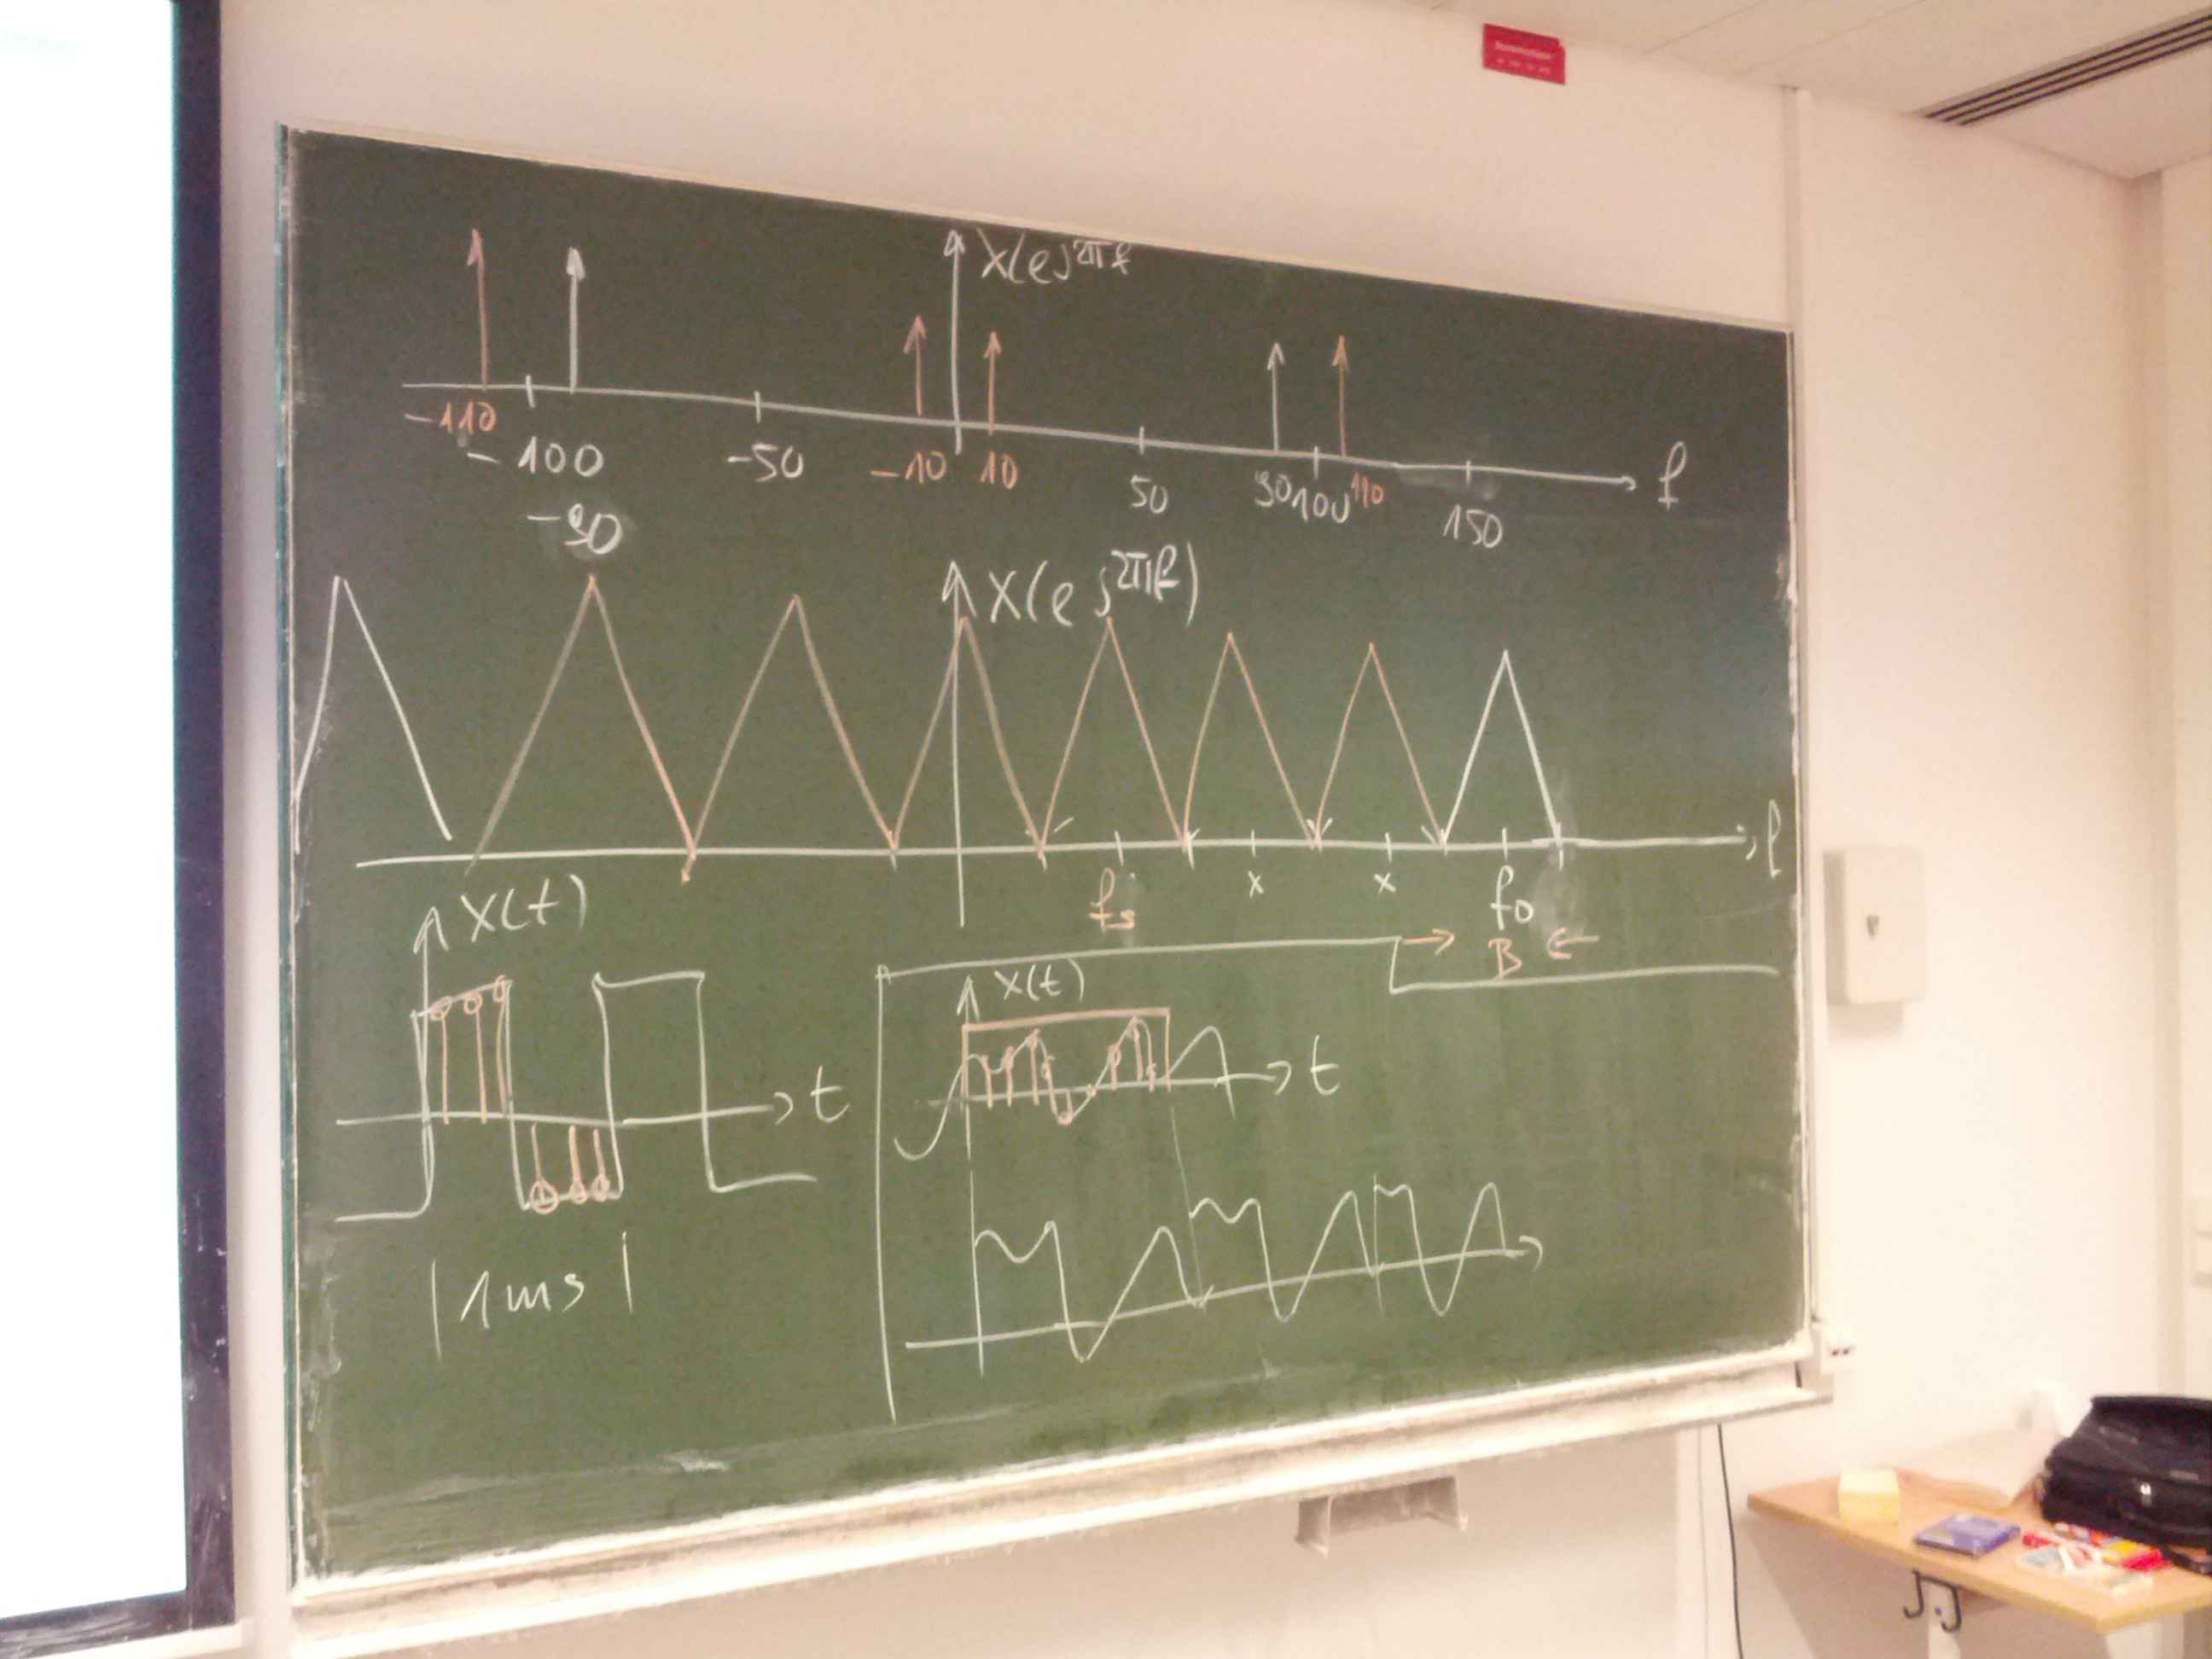 X(e^j2πf
-110
-100 -50 -10 10 50 90 100 110 150 f
-90
X(e^j2πf)
fs x x fo f
B
x(t)
t
1ms
x(t)
t